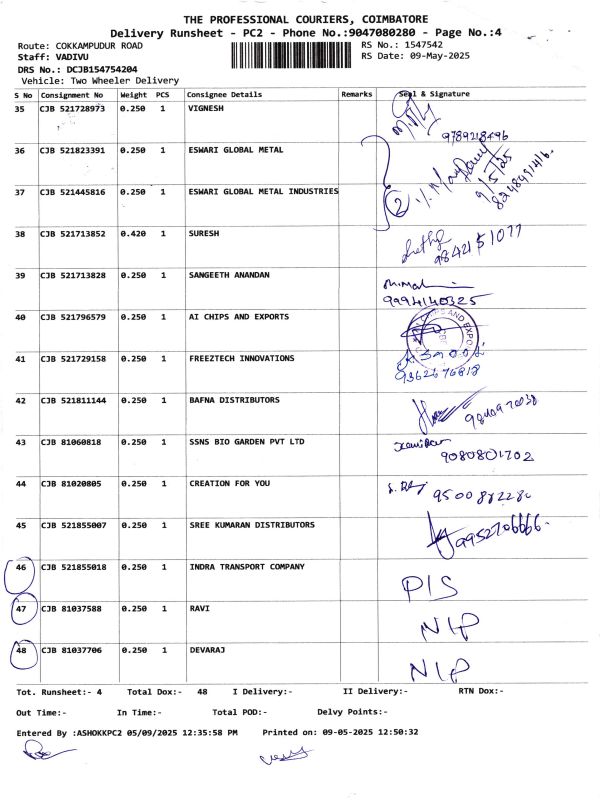 THE PROFESSIONAL COURIERS, COIMBATORE
Delivery Runsheet - PC2 - Phone No.:9047080280 - Page No.:4
Route: COKKAMPUDUR ROAD RS No.: 1547542
Staff: VADIVU RS Date: 09-May-2025
DRS No.: DCJB154754204
Vehicle: Two Wheeler Delivery
S No Consignment No Weight PCS Consignee Details Remarks Seal & Signature
35 CJB 521728973 0.250 1 VIGNESH
9789218496
36 CJB 521823391 0.250 1 ESWARI GLOBAL METAL
9/5/25
37 CJB 521445816 0.250 1 ESWARI GLOBAL METAL INDUSTRIES
2
38 CJB 521713852 0.420 1 SURESH
9842151077
39 CJB 521713828 0.250 1 SANGEETH ANANDAN
9994140325
40 CJB 521796579 0.250 1 AI CHIPS AND EXPORTS
41 CJB 521729158 0.250 1 FREEZTECH INNOVATIONS
9362676818
42 CJB 521811144 0.250 1 BAFNA DISTRIBUTORS
43 CJB 81060818 0.250 1 SSNS BIO GARDEN PVT LTD
9080801702
44 CJB 81020805 0.250 1 CREATION FOR YOU
45 CJB 521855007 0.250 1 SREE KUMARAN DISTRIBUTORS
9952706666.
46 CJB 521855018 0.250 1 INDRA TRANSPORT COMPANY
P/S
47 CJB 81037588 0.250 1 RAVI
N/P
48 CJB 81037706 0.250 1 DEVARAJ
N/P
Tot. Runsheet:- 4 Total Dox:- 48 I Delivery:- II Delivery:- RTN Dox:-
Out Time:- In Time:- Total POD:- Delvy Points:-
Entered By :ASHOKKPC2 05/09/2025 12:35:58 PM Printed on: 09-05-2025 12:50:32